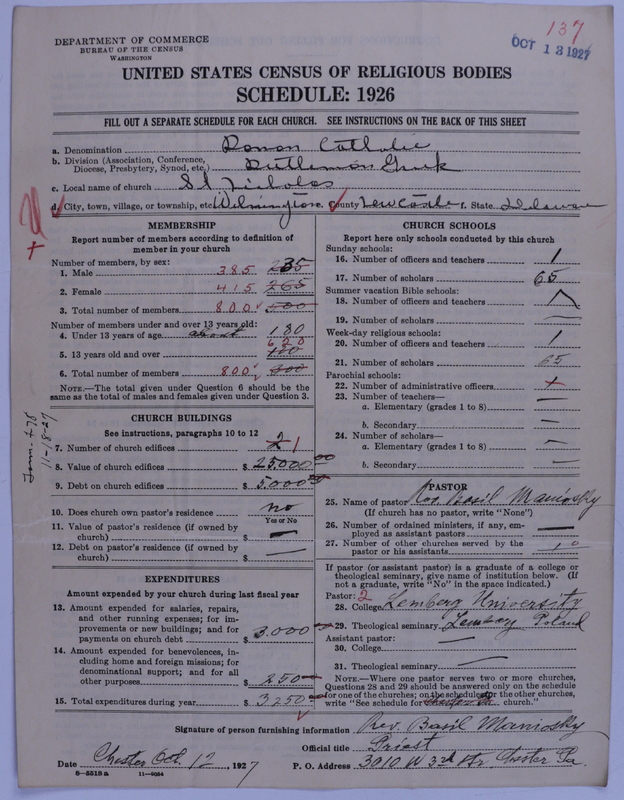 137
OCT 13 1927
DEPARTMENT OF COMMERCE
BUREAU OF THE CENSUS
WASHINGTON
UNITED STATES CENSUS OF RELIGIOUS BODIES
SCHEDULE: 1926
FILL OUT A SEPARATE SCHEDULE FOR EACH CHURCH. SEE INSTRUCTIONS ON THE BACK OF THIS SHEET
a. Denomination Roman Catholic
b. Division (Association, Conference,
Diocese, Presbytery, Synod, etc.) Greek
c. Local name of church St. Nicholas
d. City, town, village, or township, etc. Wilmington e. County New Castle f. State Delaware
MEMBERSHIP
Report number of members according to definition of
member in your church
Number of members, by sex:
1. Male 385 235
2. Female 415 265
3. Total number of members 800 500
Number of members under and over 13 years old:
4. Under 13 years of age about 180
620
5. 13 years old and over
6. Total number of members 800
NOTE.—The total given under Question 6 should be
the same as the total of males and females given under Question 3.
11-18-27
CHURCH BUILDINGS
See instructions, paragraphs 10 to 12
7. Number of church edifices 2 1
8. Value of church edifices $ 25.000.00
9. Debt on church edifices $ 5.000.00
10. Does church own pastor's residence no
Yes or No
11. Value of pastor's residence (if owned by
church) $ —
12. Debt on pastor's residence (if owned by
church) $ —
EXPENDITURES
Amount expended by your church during last fiscal year
13. Amount expended for salaries, repairs,
and other running expenses; for im-
provements or new buildings; and for
payments on church debt $ 3.000
14. Amount expended for benevolences, in-
cluding home and foreign missions; for
denominational support; and for all
other purposes $ 250
15. Total expenditures during year $ 3.250
CHURCH SCHOOLS
Report here only schools conducted by this church
Sunday schools:
16. Number of officers and teachers 1
17. Number of scholars 65
Summer vacation Bible schools:
18. Number of officers and teachers
19. Number of scholars —
Week-day religious schools:
20. Number of officers and teachers 1
21. Number of scholars 65
Parochial schools:
22. Number of administrative officers
23. Number of teachers—
a. Elementary (grades 1 to 8) —
b. Secondary —
24. Number of scholars—
a. Elementary (grades 1 to 8) —
b. Secondary —
PASTOR
25. Name of pastor Rev Basil Maniosky
(If church has no pastor, write "None")
26. Number of ordained ministers, if any, em-
ployed as assistant pastors —
27. Number of other churches served by the
pastor or his assistants 1
If pastor (or assistant pastor) is a graduate of a college or
theological seminary, give name of institution below. (If
not a graduate, write "No" in the space indicated.)
Pastor: 2
28. College Lemberg University
29. Theological seminary Poland
Assistant pastor: —
30. College
31. Theological seminary —
NOTE.—Where one pastor serves two or more churches,
Questions 28 and 29 should be answered only on the schedule
for one of the churches; on the schedules for the other churches,
write "See schedule for church."
Signature of person furnishing information Rev. Basil Maniosky
Official title Priest
Date Chester Oct. 12, 1927 P. O. Address 3010 W 3rd Str. Chester Pa.
8—5518a 11—9054